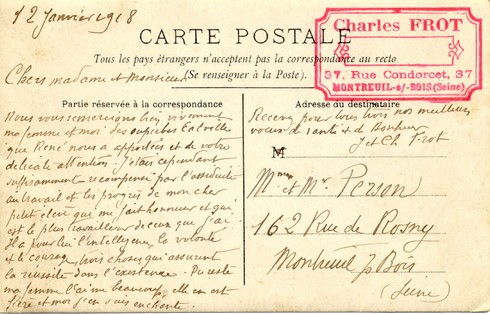 12 Janvier 1918
CARTE POSTALE
Tous les pays étrangers n'acceptent pas la correspondance au recto
(Se renseigner à la Poste.)
Charles FROT
37, Rue Condorcet, 37
MONTREUIL-s/-BOIS (Seine)
Chers madame et Monsieur
Partie réservée à la correspondance
Nous vous remercions bien vivement
ma femme et moi des superbes Calville
que René nous a apportées et de votre
délicate attention. J'étais cependant
suffisamment récompensé par l'assiduité
au travail et les progrès de mon cher
petit élève qui me fait honneur et qui
est le plus travailleur de ceux que j'ai.
Il a pour lui l'intelligence, la volonté
et le courage, trois choses qui assurent
la réussite dans l'existence. Du reste
ma femme l'aime beaucoup, elle en est
fière et moi j'en suis enchanté.
Adresse du destinataire
Recevez pour tous trois nos meilleurs
voeux de santé et de Bonheur
J et Ch Frot
M
Mme et Mr Person
162 Rue de Rosny
Montreuil s/ Bois
(Seine)